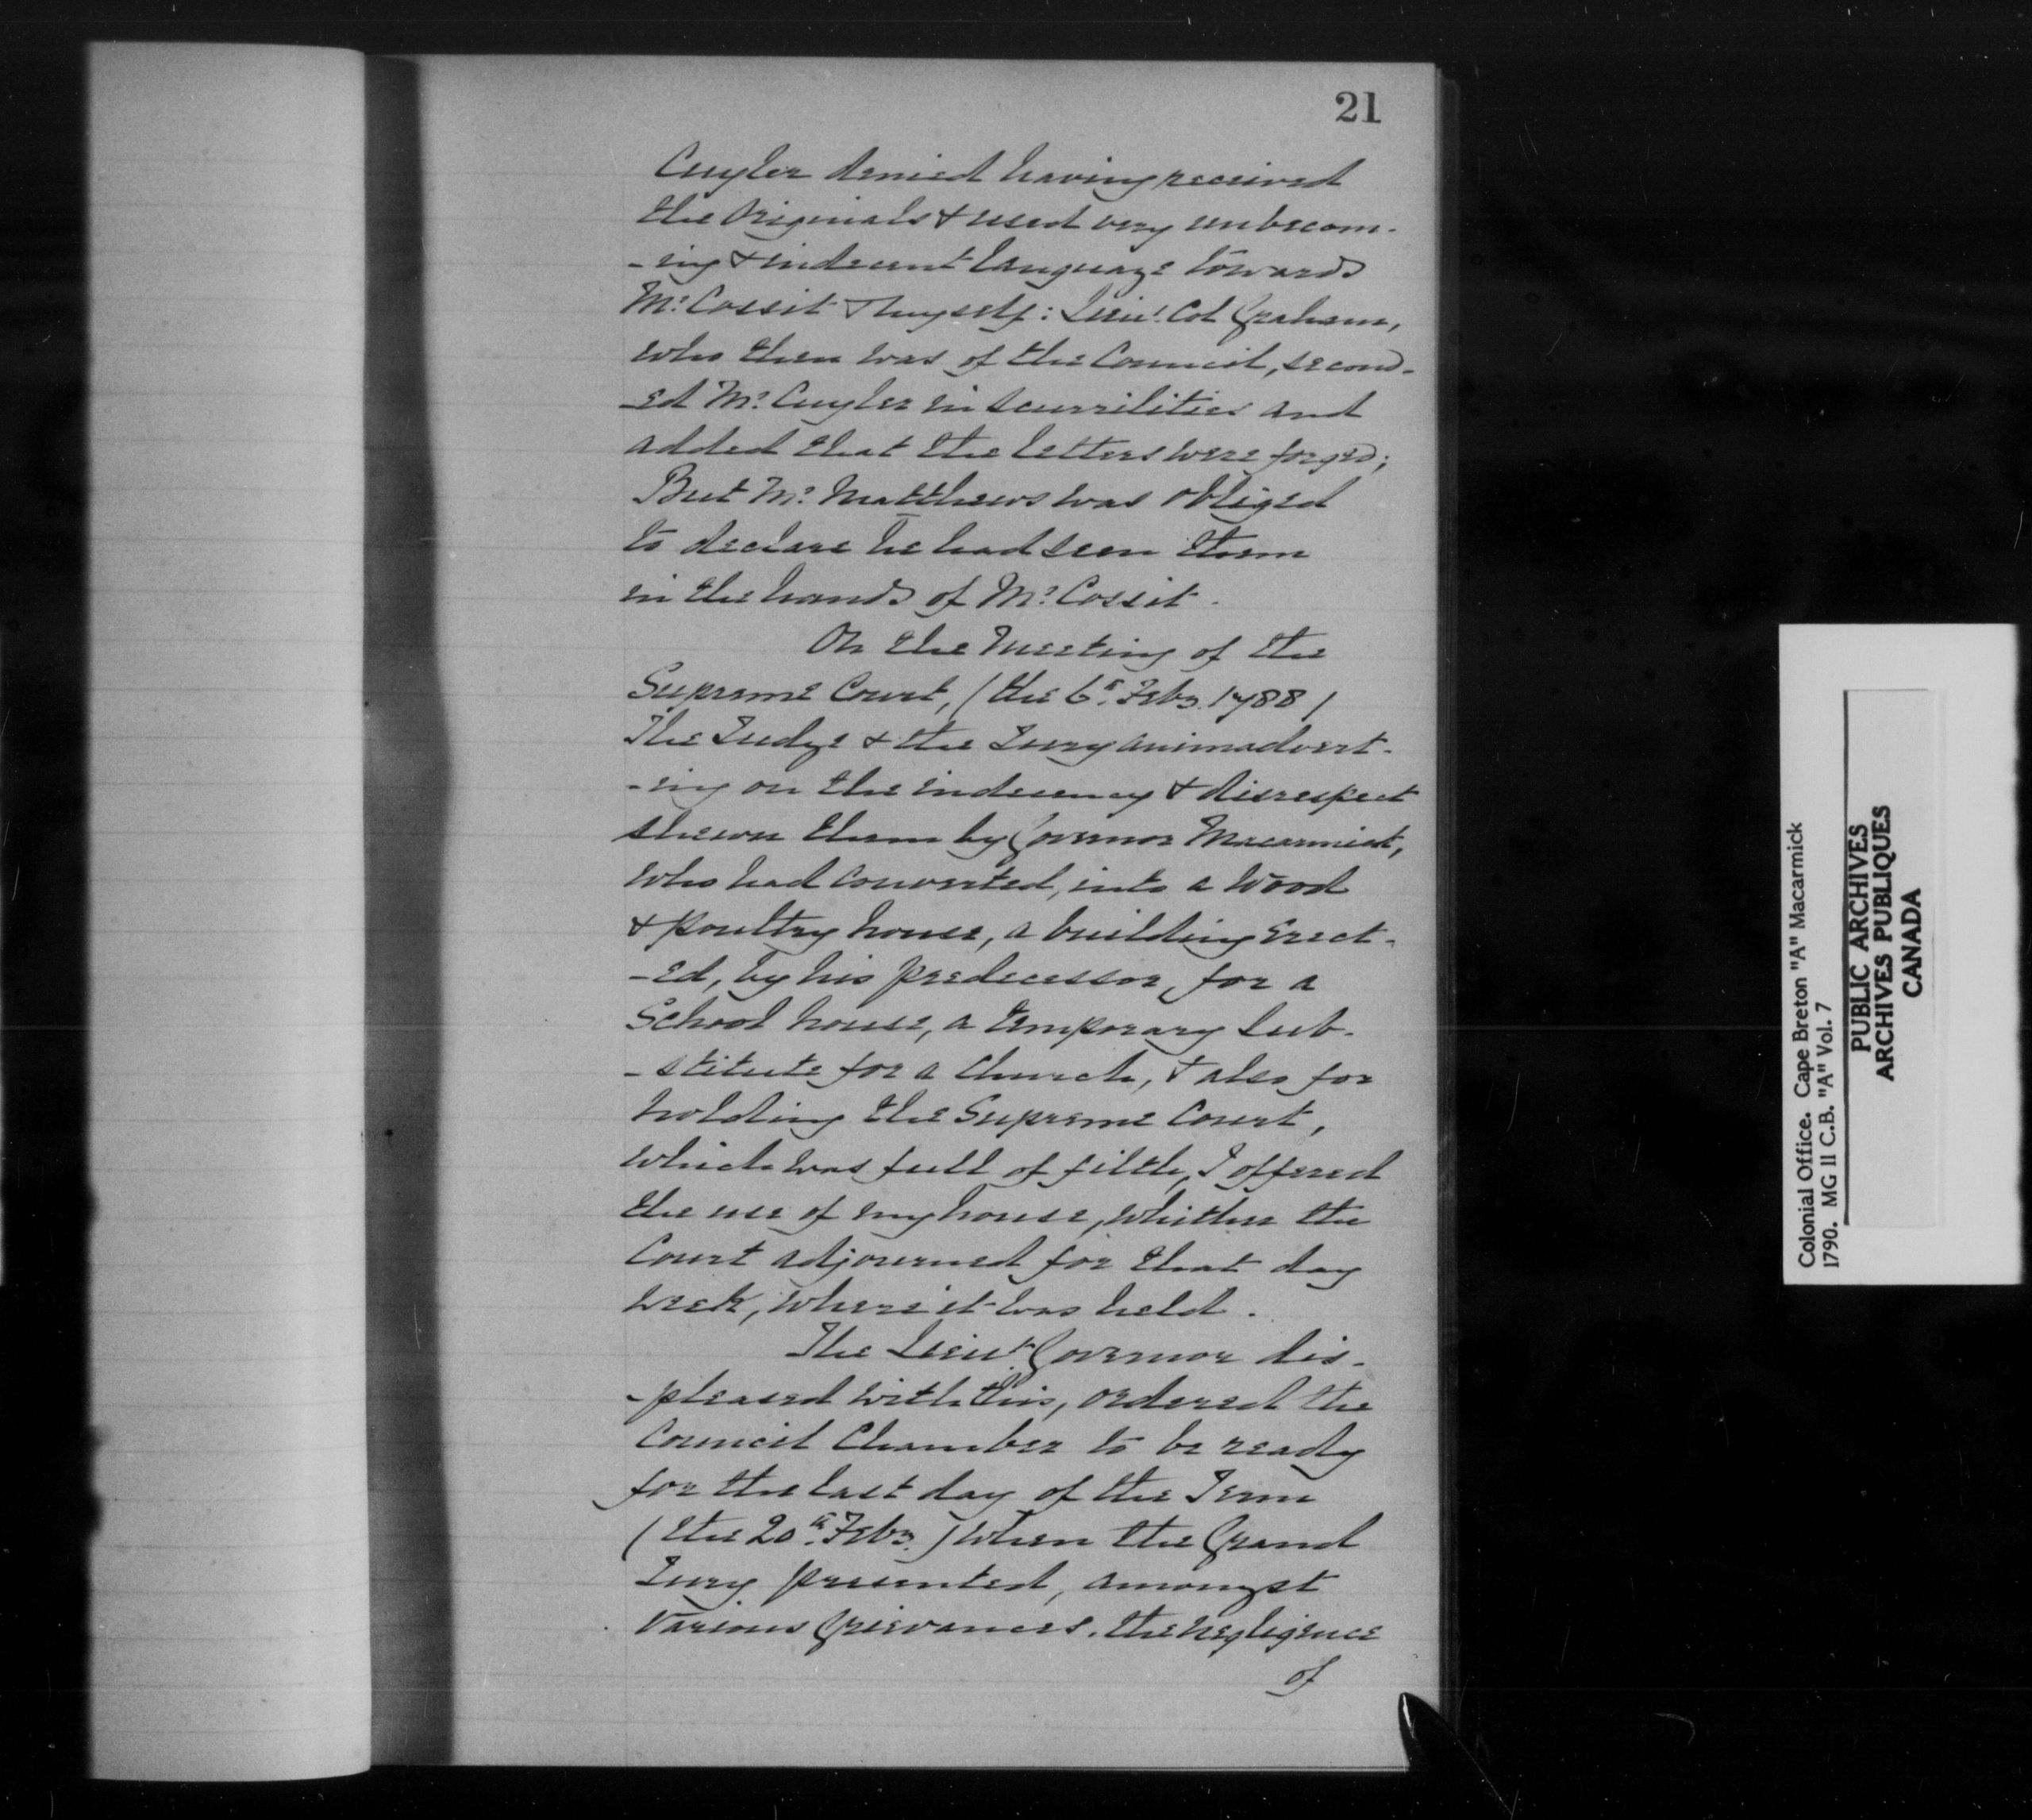 21
Cuyler denied having received
the Originals & used very unbecom-
-ing & indecent language towards
Mr. Cossit & myself: Lieut. Col Graham,
who then was of the Council, second-
-ed Mr. Cuyler in scurrilities and
added that the letters were forged;
But Mr. Matthews was obliged
to declare he had seen them
in the hands of Mr. Cossit.
On the Meeting of the
Supreme Court, (the 6th. Feby. 1788)
The Judge & the Jury animadvert-
-ing on the indecency & disrespect
shewn them by Governor Macarmick,
who had converted, into a wood
& poultry house, a building Erect-
-ed, by his predecessor, for a
School house, a temporary Sub-
-stitute for a Church, & also for
holding the Supreme Court,
which was full of filth, I offered
the use of my house, whither the
Court adjourned for that day
week, where it was held.
The Lieut. Governor dis-
-pleased with this, ordered the
Council Chamber to be ready
for the last day of the Term
(the 20th. Feby.) when the Grand
Jury presented, amongst
various Grievances, the negligence
of
Colonial Office. Cape Breton "A" Macarmick
1790. MG 11 C.B. "A" Vol. 7
PUBLIC ARCHIVES
ARCHIVES PUBLIQUES
CANADA